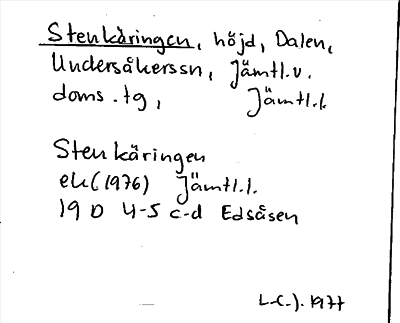 Stenkäringen, höjd, Dalen,
Undersåkerssn, Jämtl.v.
doms.tg, Jämtl.l.
Stenkäringen
ek(1976) Jämtl.l.
19 D 4-5 c-d Edsåsen
1977